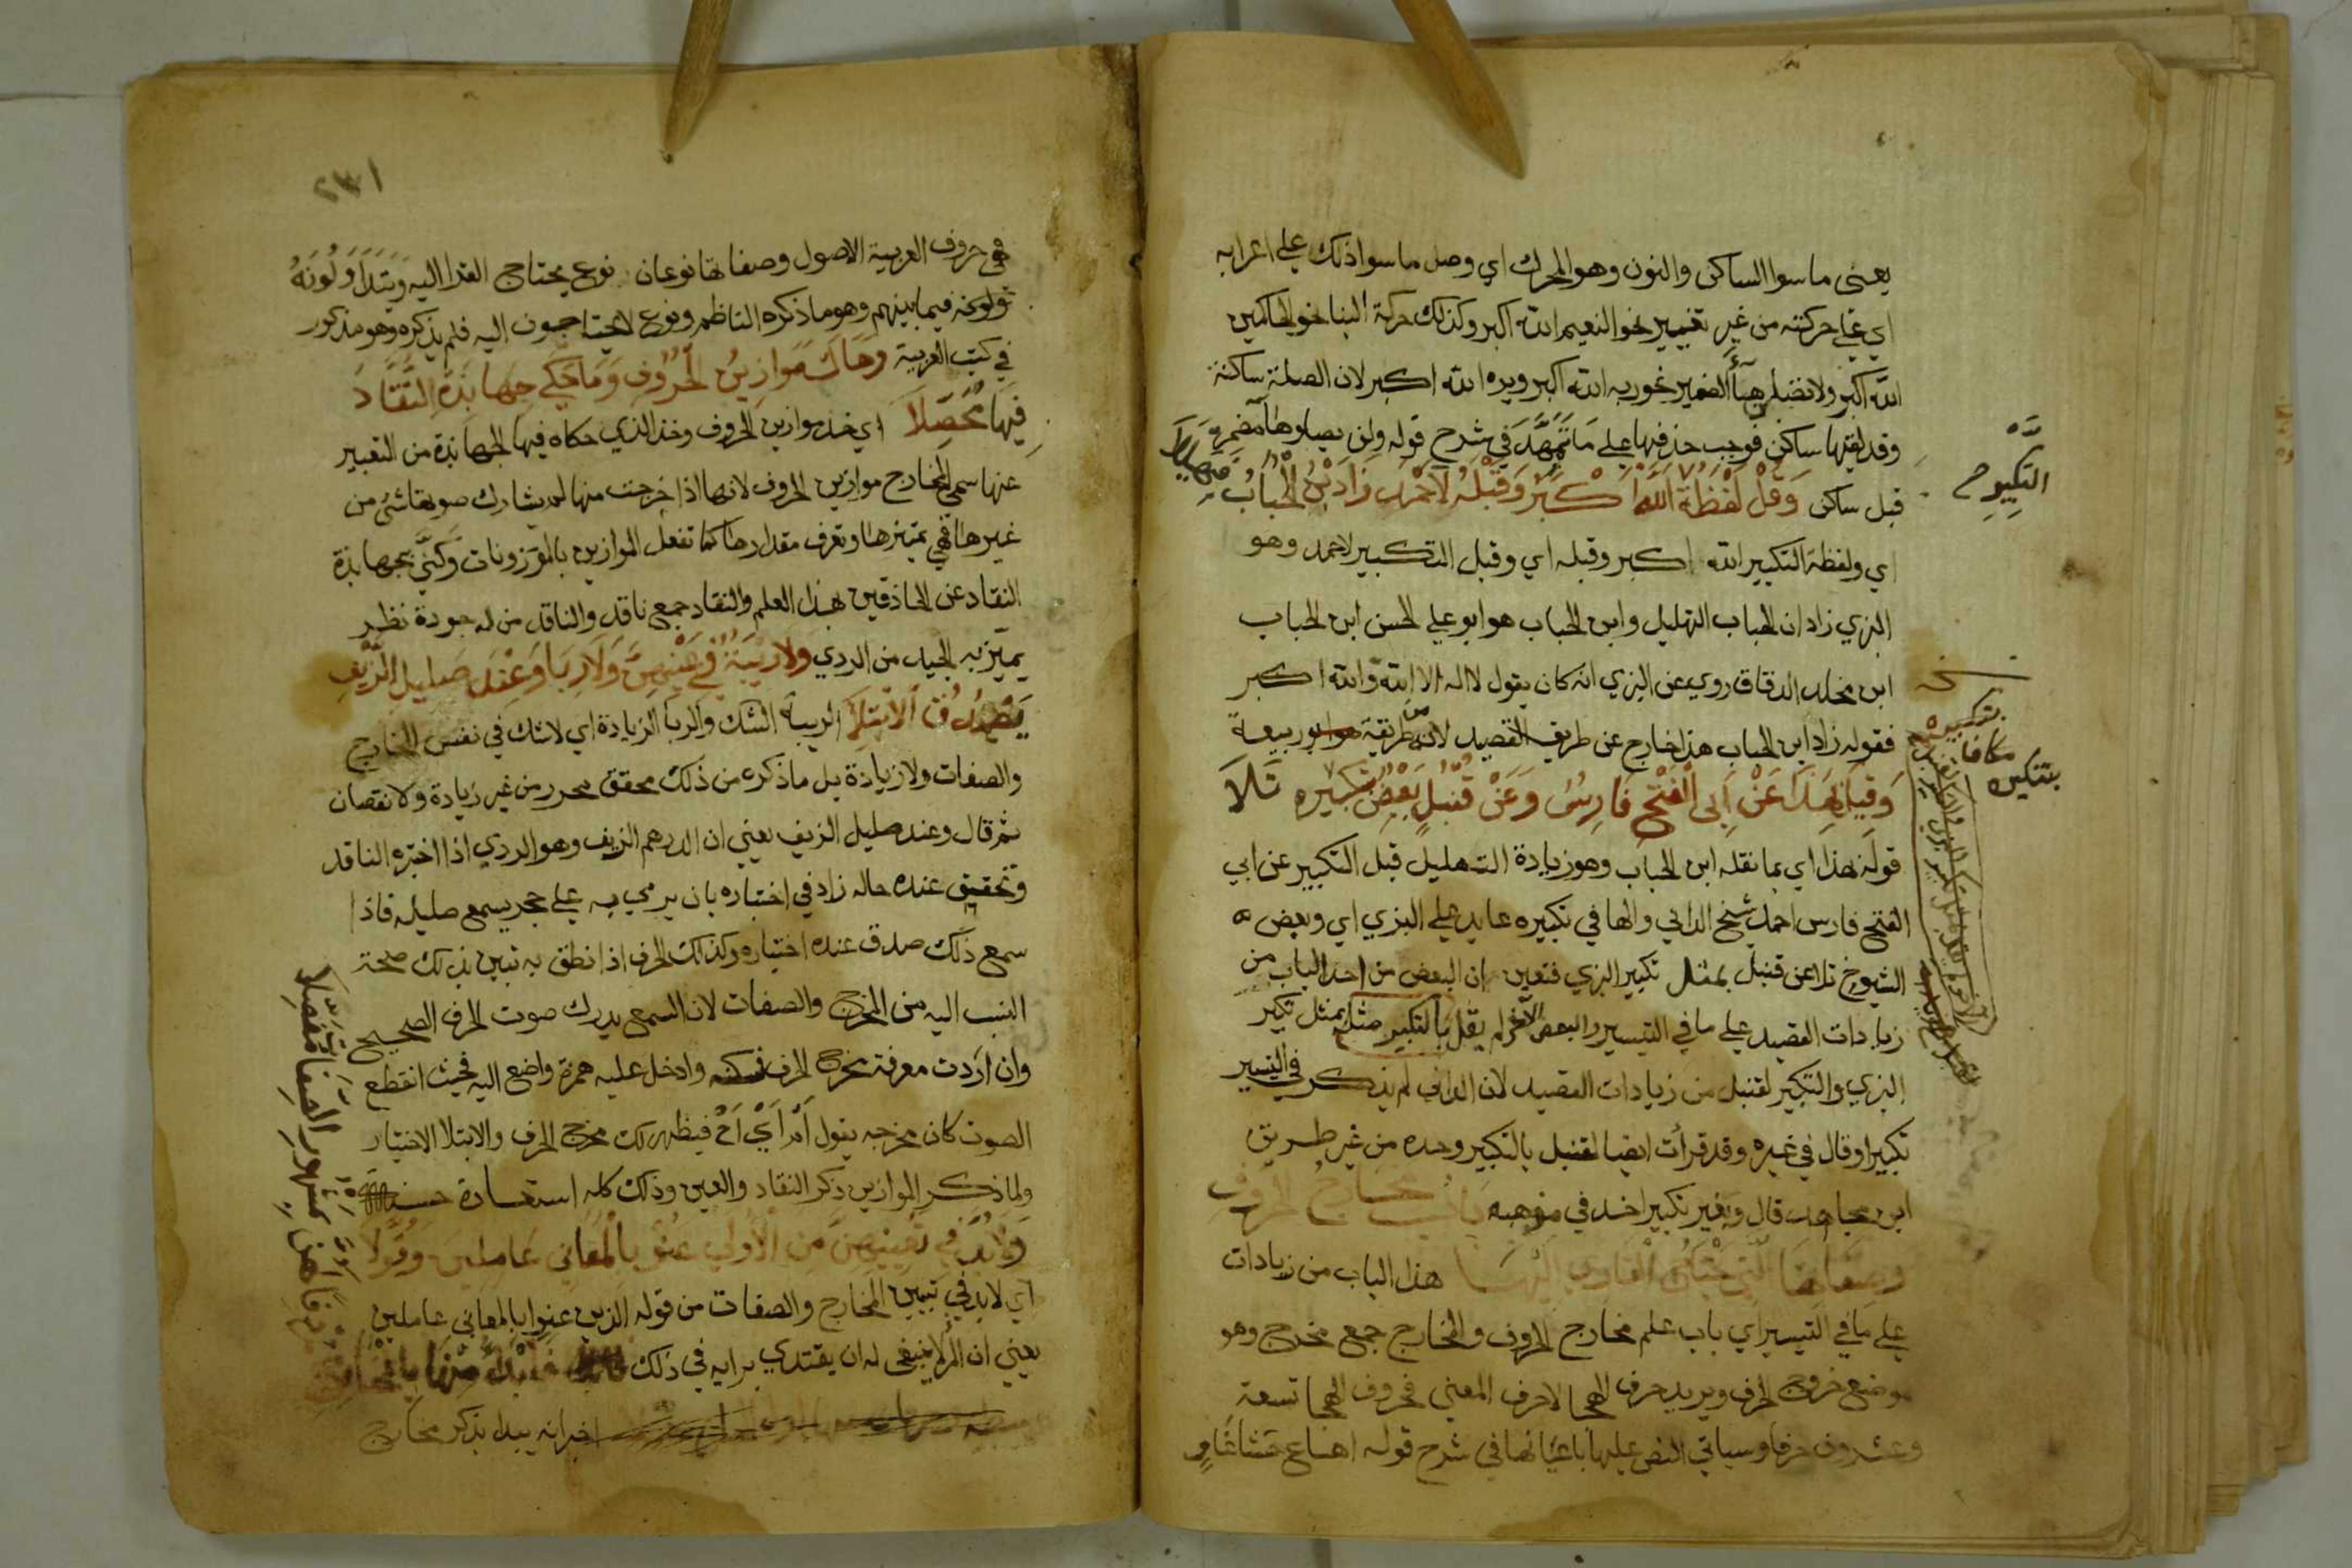 يعني ما سوا الساكن والنون وهو المحرك اي وصل ما سوا ذلك علي اعرابه
اي علي حركته من غير تغيير نحو النعيم الله اكبر وكذلك حركة البنا نحو الحاكمين
الله اكبر ولا تصلن هاء الضمير نحو ربه الله اكبر ويره الله اكبر لان الصلة ساكنة
وقد لقيتها ساكن فوجب حذفها علي ما تمهد في شرح قوله ولم يصلوا ها مضمر
قبل ساكن وقل لفظة الله اكبر وقبله لاحمد زاد بن الحباب فهيللا
اي ولفظة التكبير الله اكبر وقبله اي وقبل التكبير لاحمد وهو
البزي زاد ان الحباب التهليل وابن الحباب هو ابو علي الحسن ابن الحباب
ابن مخلد الدقاق روي عن البزي انه كان يقول لا اله الا الله والله اكبر
فقوله زاد ابن الحباب هذا خارج عن طريق القصيد لان من طريقة ابو ربيعة
وقيل بهذا عن ابي الفتح فارس وعن قنبل بعض بتكبيره تلا
قوله بهذا اي بما نقله ابن الحباب وهو زيادة التهليل قبل التكبير عن ابي
الفتح فارس احمد شيخ الداني والها في تكبيره عايد علي البزي اي وبعض
الشيوخ تلا عن قنبل بمثل تكبير البزي فتعين ان البعض من اخذ الباب من
زيادات القصيد علي ما في التيسير والبعض الآخر لم يقل بالتكبير مثل بمثل تكبير
البزي والتكبير لقنبل من زيادات القصيد لان الداني لم يذكر في التيسير
تكبيرا وقال في غيره وقد قرأت ايضا لقنبل بالتكبير وحده من غير طريق
ابن مجاهد قال وبغير تكبير اخذ في مذهبه باب مخارج الحروف
وصفاتها التي يحتاج القاري اليها هذا الباب من زيادات
علي ما في التيسير اي باب علم مخارج الحروف والمخارج جمع مخرج وهو
موضع خروج الحرف ويريد حرف الهجا لا حرف المعني فحروف الهجا تسعة
وعشرون حرفا وسياتي النص عليها باعيانها في شرح قوله اهاع حشا غاو
التكبير
نخه
بتكبيره
مكافا
بتكبيره
٢٣١
هي حروف العربية الاصول وصفاتها نوعان نوع يحتاج القرا اليه ويتداولونه
فيما بينهم وهو ما ذكره الناظم ونوع لا يحتاجون اليه فلم يذكره وهو مذكور
في كتب العربية وهاك موازين الحروف وما حكي جهابذة النقاد
فيها محصلا اي خذ موازين الحروف وخذ الذي حكاه فيها الجهابذة من التعبير
عنها سمي المخارج موازين الحروف لانها اذا خرجت منها لم يشارك صوتها شي من
غيرها فهي تميزها وتعرف مقدارها كما تفعل الموازين بالموزونات وكني بجهابذة
النقاد عن الحاذقين بهذا العلم والنقاد جمع ناقد والناقد من له جودة نظر
يميز به الجيد من الردي ولا ريبة في عينهن ولا ربا وعند صليل الزيف
يصدق الابتلا الريبة الشك والربا الزيادة اي لا شك في نفس المخارج
والصفات ولا زيادة بل ما ذكره من ذلك محقق محرر من غير زيادة ولا نقصان
ثم قال وعند صليل الزيف يعني ان الدرهم الزيف وهو الردي اذا اختبره الناقد
وتحقيق عنده حاله زاد في اختباره بان يرمي به علي حجر يسمع صليله فاذا
سمع ذلك صدق عنده اختباره وكذلك الحرف اذا نطق به تبين بذلك صحة
النسب اليه من المخرج والصفات لان السمع يدرك صوت الحرف الصحيح
وان اردت معرفة مخرج الحرف فسكنه وادخل عليه همزة واضع اليه فحيث انقطع
الصوت كان مخرجه يقول اَمْ اَيْ اَخْ فيظهر لك مخرج الحرف والابتلا الاختبار
ولما ذكر الموازين ذكر النقاد والعين وذلك كله استعارة حسنة
ولابد في تعيينهن من الاولي عنو بالمعاني عاملين وقولا
اي لابد في تبيين المخارج والصفات من قوله الذين عنوا بالمعاني عاملين
يعني ان المرء لا ينبغي له ان يقتدي برايه في ذلك فابدأ منها بالمخارج
اخبر انه يبدا بذكر مخارج
لهن بمشهور الصفات مفصلا